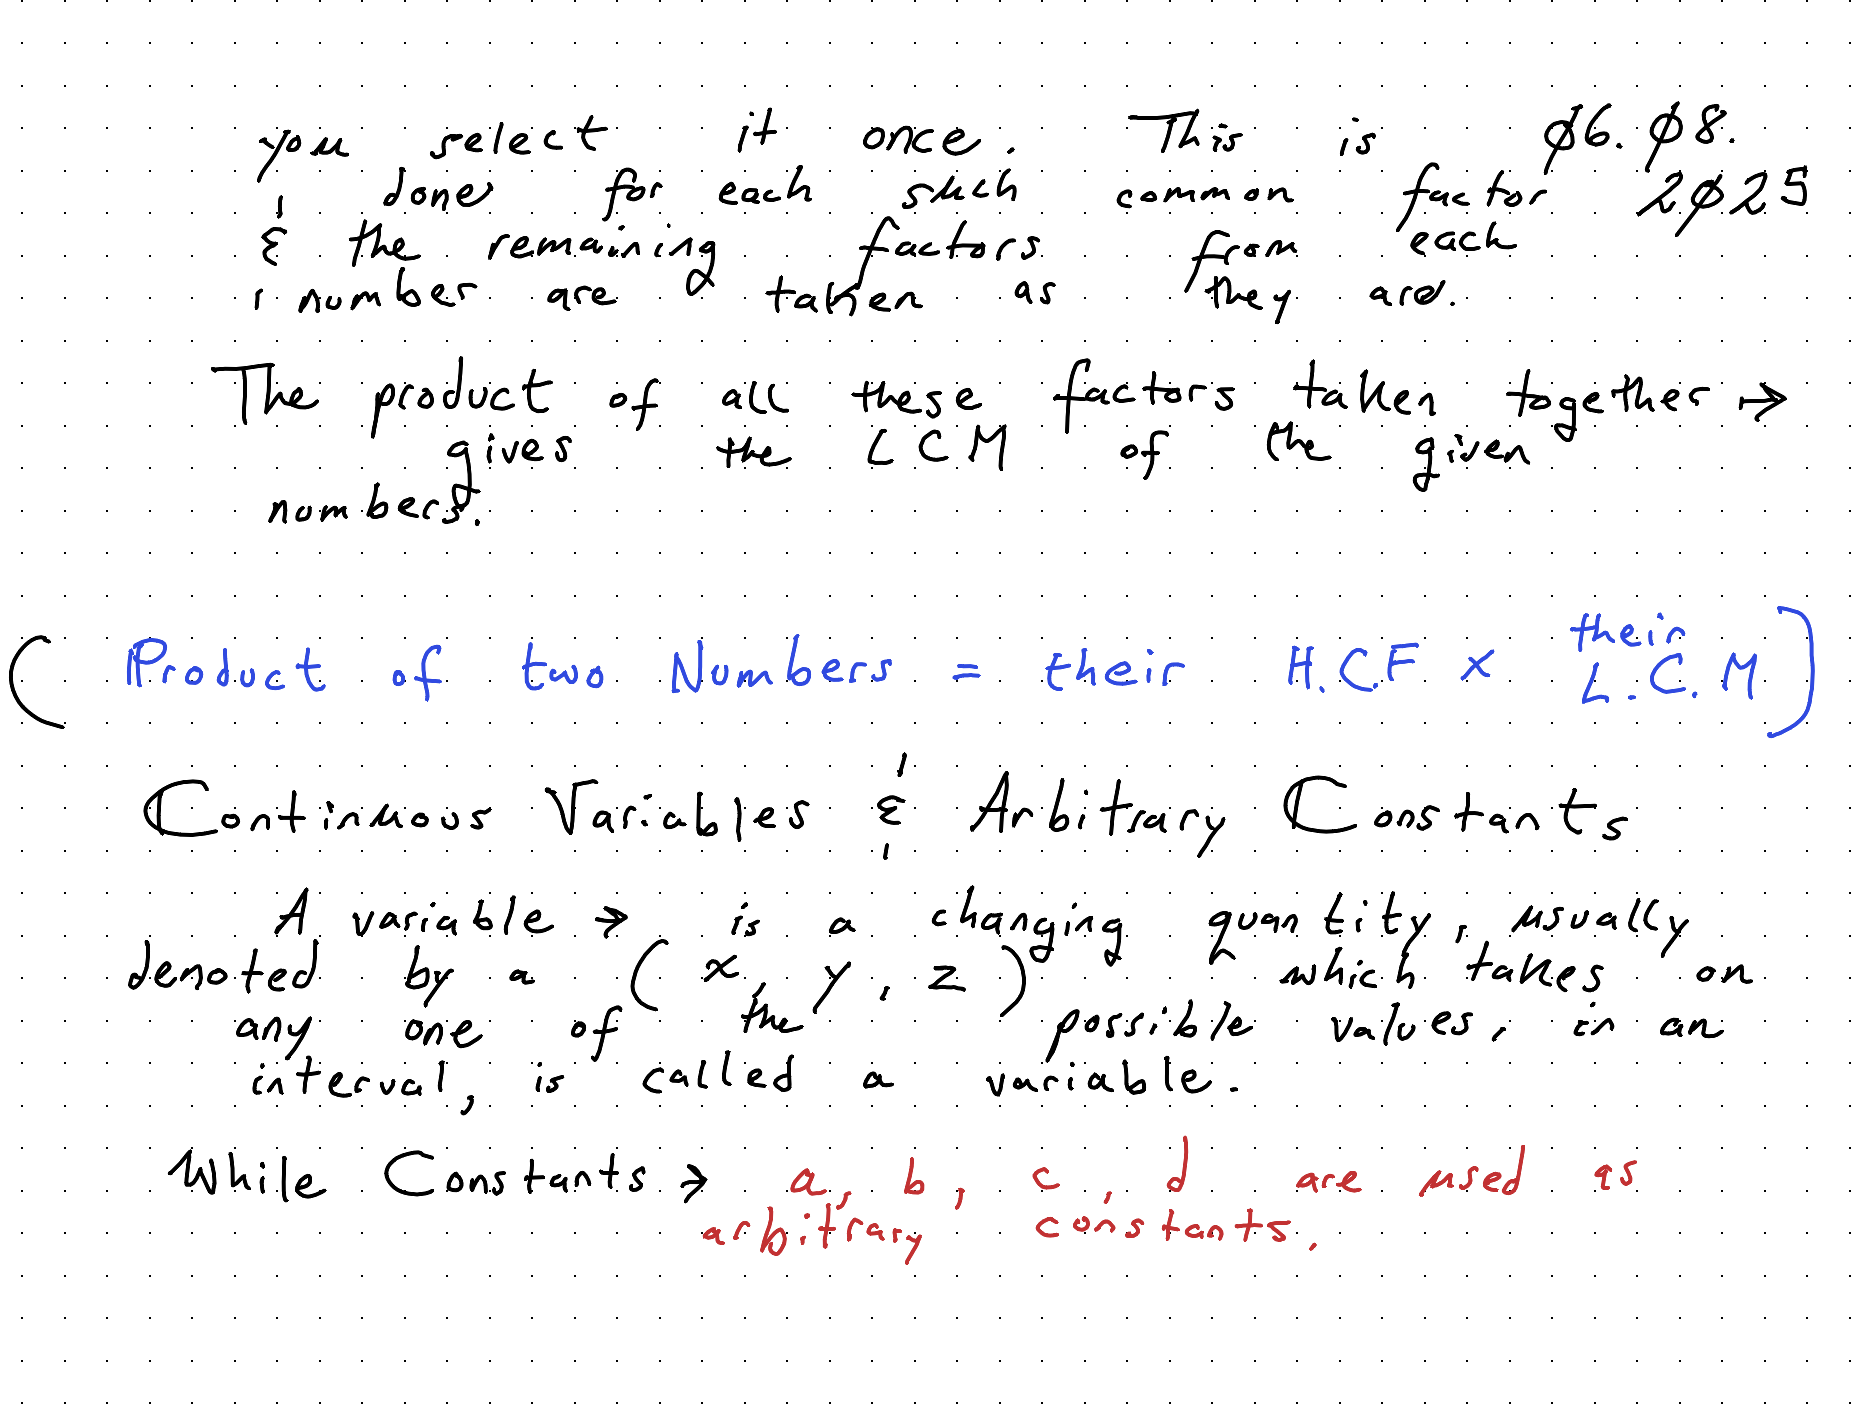 you select it once. This is 06.08.
& done for each such common factor 2025
the remaining factors from each
number are taken as they are.
The product of all these factors taken together →
gives the LCM of the given
numbers.
their
( Product of two Numbers = their H.C.F × L.C.M )
Continuous Variables & Arbitrary Constants
A variable → is a changing quantity, usually
denoted by a (x, y, z) which takes on
any one of the possible values, in an
interval, is called a variable.
While Constants → a, b, c, d are used as
arbitrary constants.